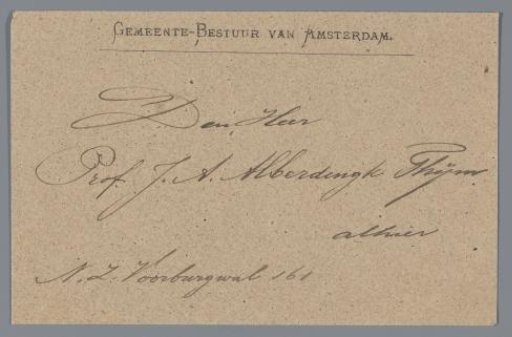 GEMEENTE-BESTUUR VAN AMSTERDAM.
Den Heer
Prof. J. A. Alberdingk Thijm
alhier
N. Z. Voorburgwal 161